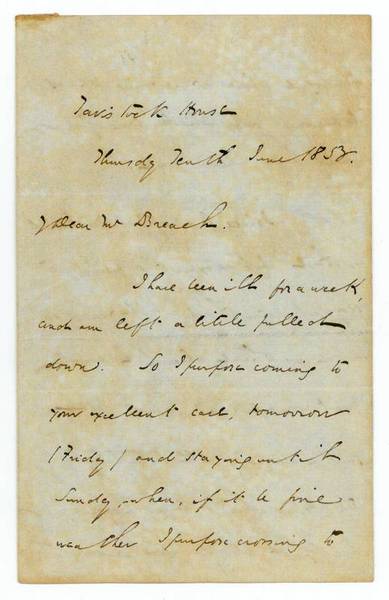 Tavistock House
Thursday Tenth June 1853.
My Dear Mr Breach.
I have been ill for a week,
and am left a little pulled
down. So I purpose coming to
your excellent care, tomorrow
(Friday) and staying until
Sunday, when, if it be fine
weather I purpose crossing to